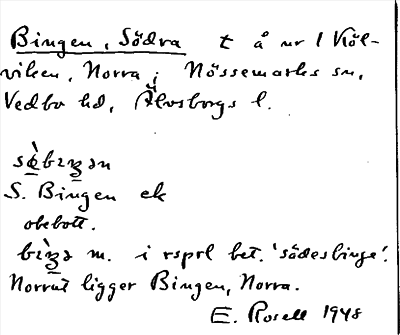 Bingen, Södra t å nr 1 Köl-
viken, Norra i Nössemarks sn,
Vedbo hd, Älvsborgs l.
S. Bingen ek
obebott.
m. i rsprl bet. 'sädesbinge'.
Norrut ligger Bingen, Norra.
E. Rosell 1948